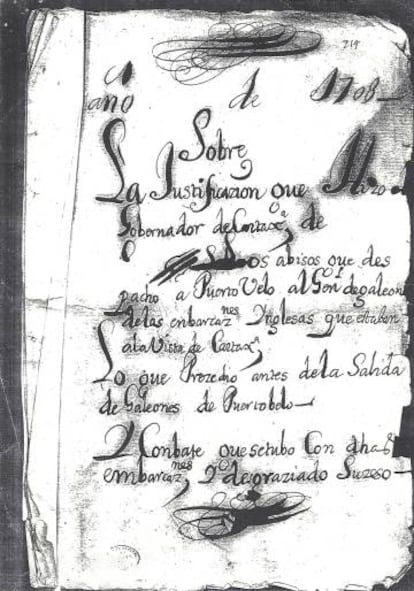 219
año de 1708
Sobre
La Justificazion que Hizo
Gobernador de Cartaxª, de
Los abisos que des
pacho a Puerto Velo al Gen de galeon
de las embarcaznes Inglesas que estaban
a la Vista de Cartaxª,
Lo que Prozedio antes de la Salida
de Galeones de Puertobelo
Y Conbate que se tubo Con dhas
embarcaznes, Y desgraziado Suzeso